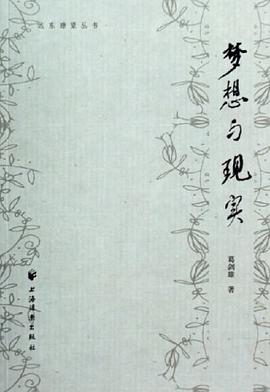 远东瞭望丛书
梦想与现实
葛剑雄 著
上海远东出版社